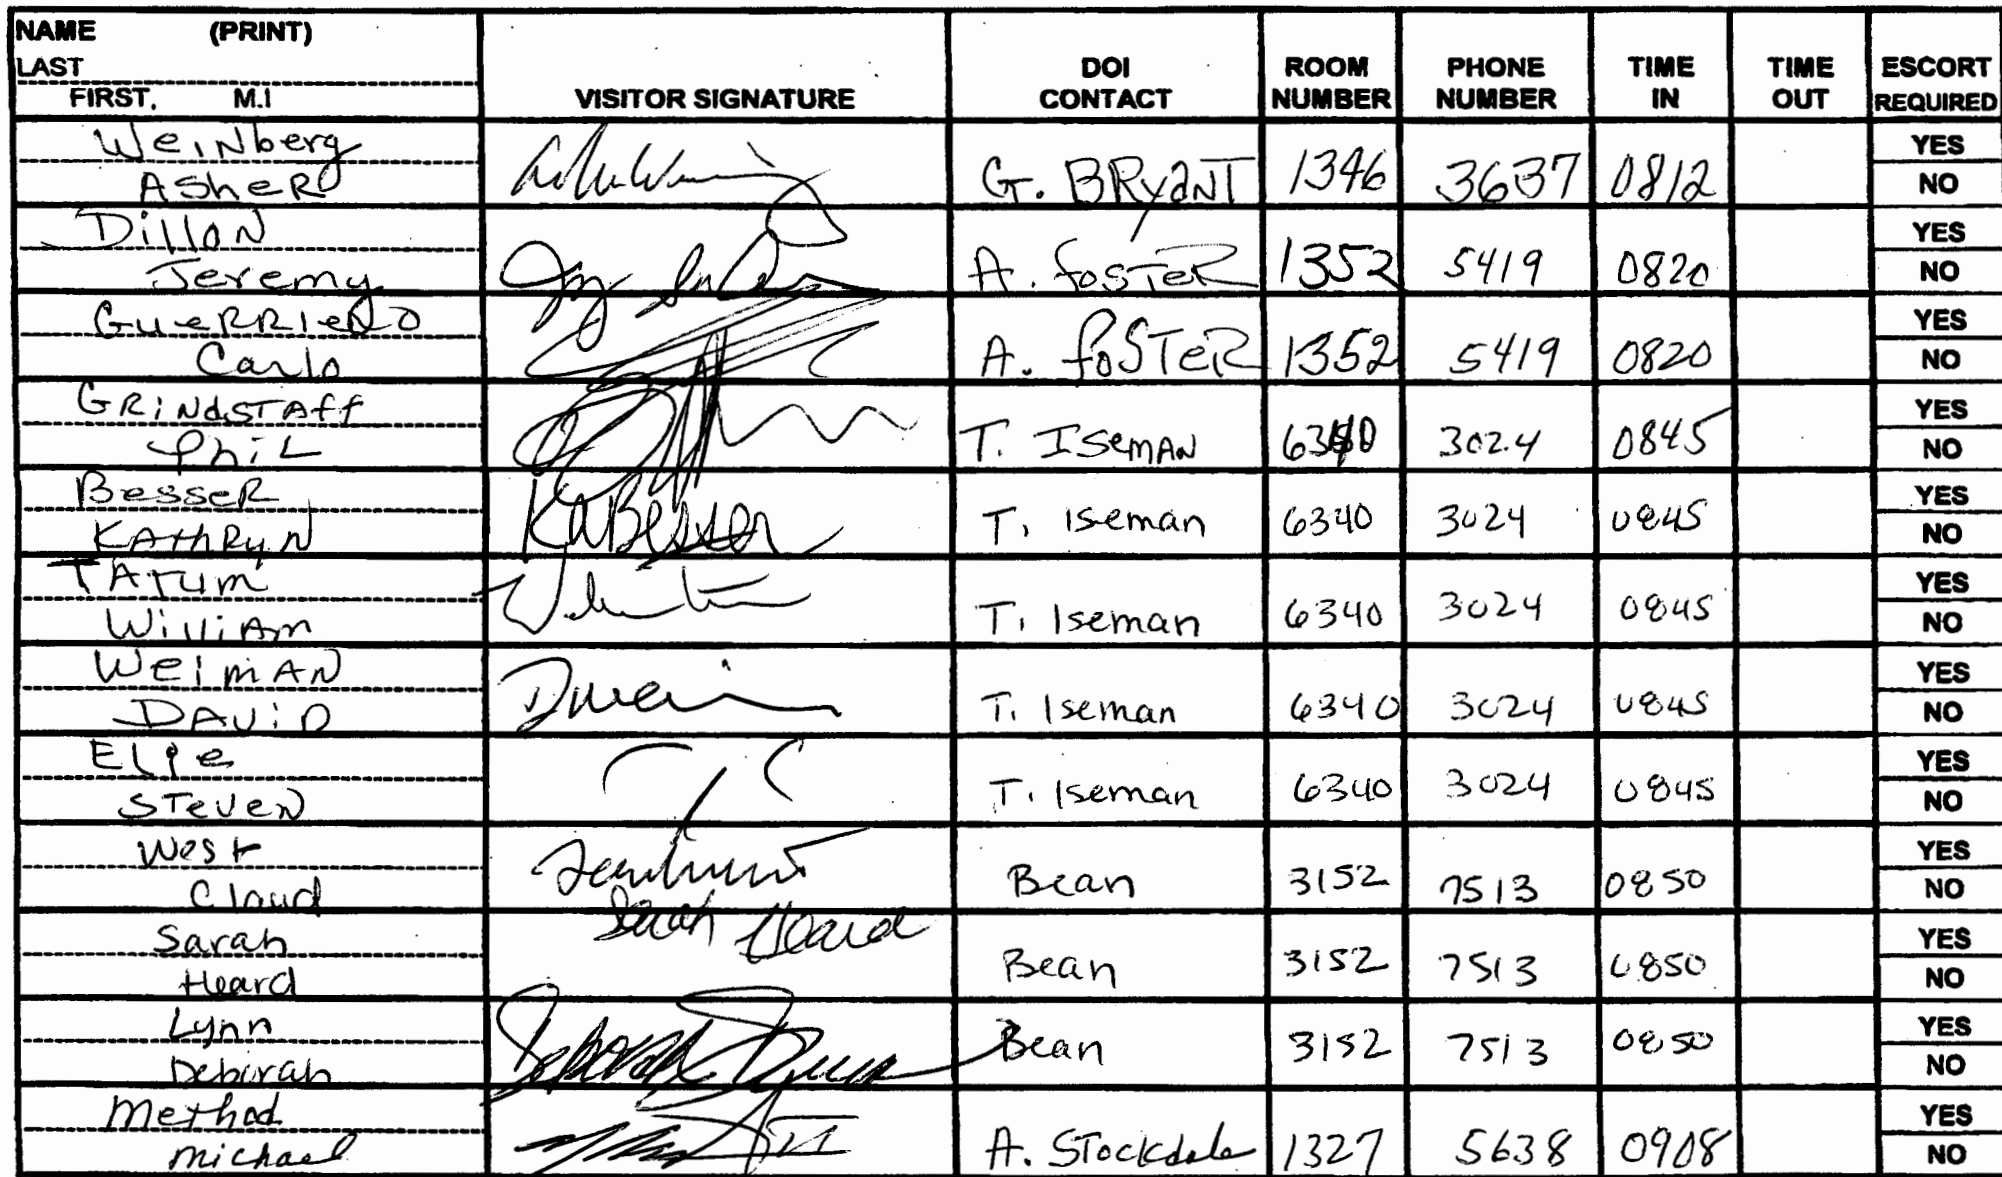 NAME (PRINT)
LAST
FIRST, M.I
VISITOR SIGNATURE
DOI CONTACT
ROOM NUMBER
PHONE NUMBER
TIME IN
TIME OUT
ESCORT REQUIRED
Weinberg
Asher G. BRyaNT 1346 3637 0812 YES NO
Dillon
Jeremy A. fosTeR 1352 5419 0820 YES NO
GueRRieRo
Carlo A. foSTeR 1352 5419 0820 YES NO
GRiNdSTAff
Phil T. ISemAN 6340 3024 0845 YES NO
BesseR
KAthRyN KABesser T. Iseman 6340 3024 0845 YES NO
TATum
WilliAm T. Iseman 6340 3024 0845 YES NO
WeimAN
DAViD T. Iseman 6340 3024 0845 YES NO
Elie
STeveN T. Iseman 6340 3024 0845 YES NO
West
Claud Bean 3152 7513 0850 YES NO
Sarah
Heard Sarah Heard Bean 3152 7513 0850 YES NO
Lynn
Deborah Deborah Lynn Bean 3152 7513 0850 YES NO
Method
Michael A. STockdale 1327 5638 0908 YES NO